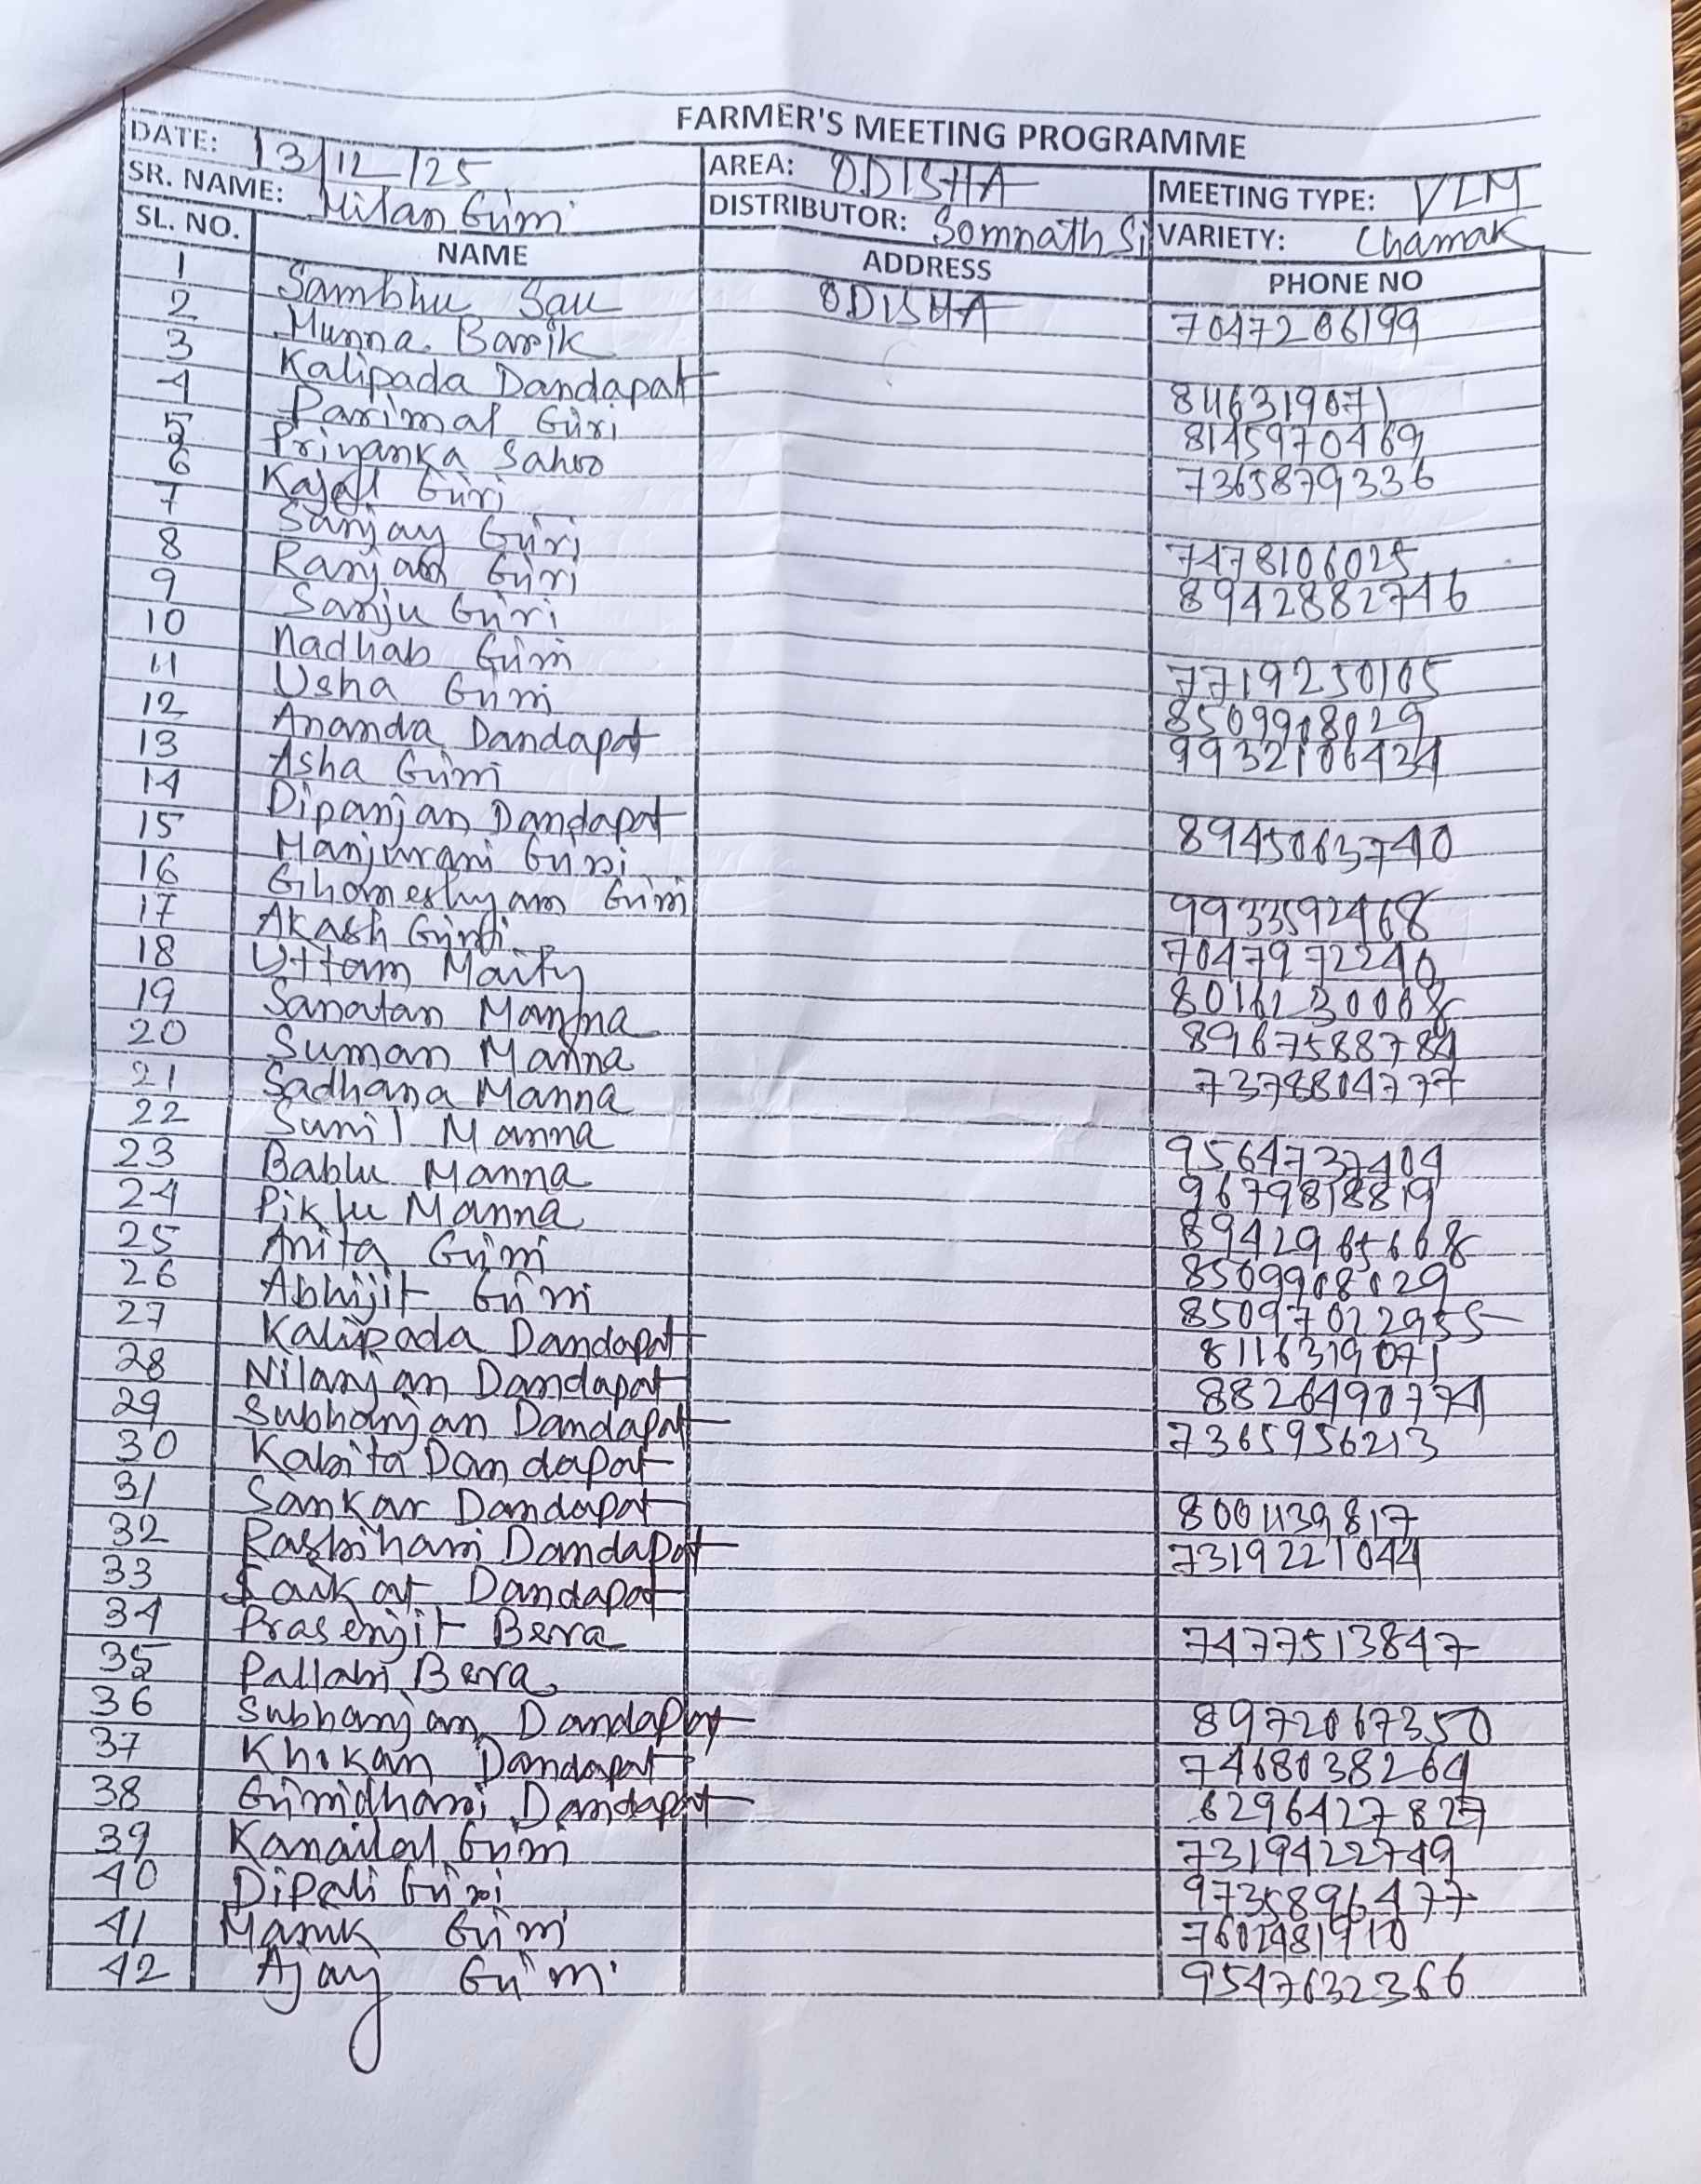 FARMER'S MEETING PROGRAMME
DATE: 13/12/25 AREA: ODISHA MEETING TYPE: VLM
SR. NAME: Milan Giri DISTRIBUTOR: Somnath Si VARIETY: Chamak
SL. NO. NAME ADDRESS PHONE NO
1 Sambhu Sau ODISHA 7047206199
2 Munna Barik
3 Kalipada Dandapat 8116319071
4 Parimal Giri 8145970469
5 Priyanka Sahoo 7365879336
6 Kajal Giri
7 Sanjay Giri 7478106025
8 Ranjan Giri 8942882746
9 Sanju Giri
10 Madhab Giri 7719250105
11 Usha Giri 8509908029
12 Ananda Dandapat 9932106434
13 Asha Giri
14 Dipanjan Dandapat 8945063740
15 Manjurani Giri
16 Ghomeshyam Giri 9933592468
17 Akash Giri 7047972240
18 Uttam Maity 8016230008
19 Sanatan Manna 8967588784
20 Suman Manna 7378804777
21 Sadhana Manna
22 Sunil Manna 9564737404
23 Bablu Manna 9679818819
24 Piklu Manna 8942965668
25 Anita Giri 8509908029
26 Abhijit Giri 85097022955
27 Kalipada Dandapat 8116319071
28 Nilanjan Dandapat 8826490774
29 Subhanjan Dandapat 7365956213
30 Kabita Dandapat
31 Sankar Dandapat 8001139817
32 Rasbihari Dandapat 7319221044
33 Saikat Dandapat
34 Prasenjit Bera 7477513847
35 Pallabi Bera
36 Subhanjan Dandapat 8972067350
37 Khokan Dandapat 7468038264
38 Giridhari Dandapat 6296427827
39 Kanailal Giri 7319422749
40 Dipali Giri 9735896477
41 Manik Giri 7602481910
42 Ajay Giri 9547632366